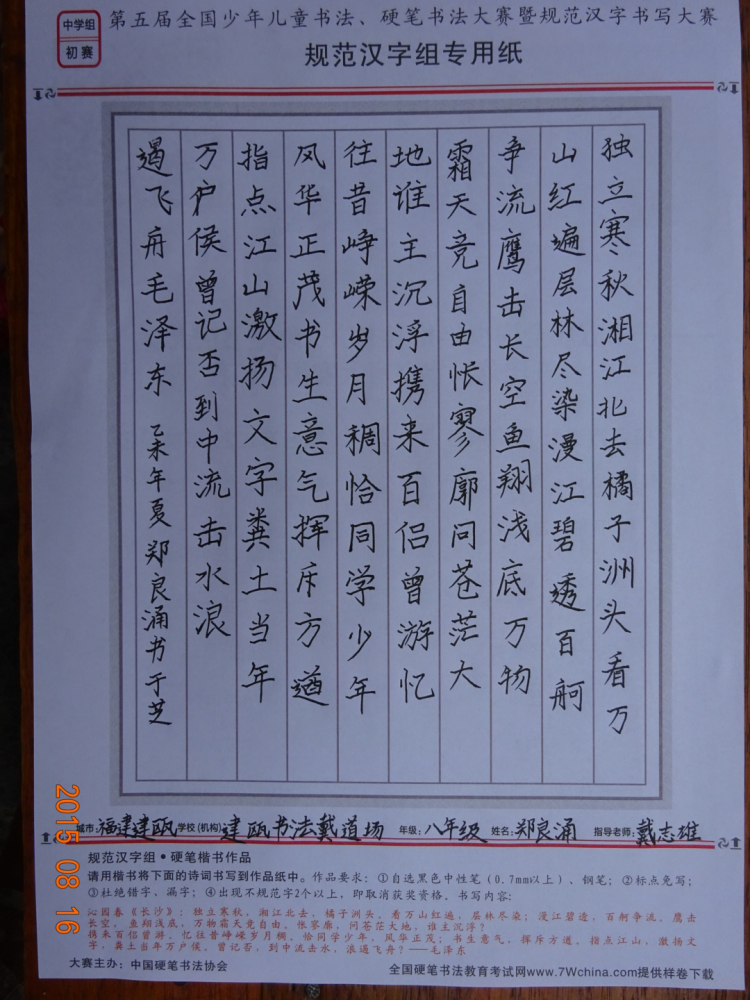 中学组
初赛
第五届全国少年儿童书法、硬笔书法大赛暨规范汉字书写大赛
规范汉字组专用纸
独立寒秋湘江北去橘子洲头看万
山红遍层林尽染漫江碧透百舸
争流鹰击长空鱼翔浅底万物
霜天竞自由怅寥廓问苍茫大
地谁主沉浮携来百侣曾游忆
往昔峥嵘岁月稠恰同学少年
风华正茂书生意气挥斥方遒
指点江山激扬文字粪土当年
万户侯曾记否到中流击水浪
遏飞舟毛泽东 乙未年夏郑良涌书于芝
城市:福建建瓯 学校(机构)建瓯书法戴道场 年级:八年级 姓名:郑良涌 指导老师:戴志雄
规范汉字组·硬笔楷书作品
请用楷书将下面的诗词书写到作品纸中。作品要求:①自选黑色中性笔(0.7mm以上)、钢笔;②标点免写;
③杜绝错字、漏字;④出现不规范字2个以上,即取消获奖资格。书写内容:
沁园春《长沙》:独立寒秋,湘江北去,橘子洲头。看万山红遍,层林尽染;漫江碧透,百舸争流。鹰击
长空,鱼翔浅底,万物霜天竞自由。怅寥廓,问苍茫大地,谁主沉浮?
携来百侣曾游,忆往昔峥嵘岁月稠。恰同学少年,风华正茂;书生意气,挥斥方遒。指点江山,激扬文
字,粪土当年万户侯。曾记否,到中流击水,浪遏飞舟?——毛泽东
大赛主办:中国硬笔书法协会 全国硬笔书法教育考试网www.7Wchina.com提供样卷下载
2015 08 16